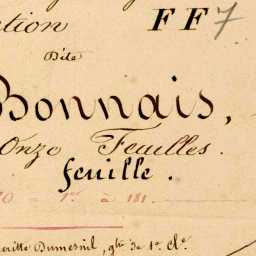 ation FF7
Dite
Bonnais,
Onze Feuilles.
feuille.
0 1er à 181
Dumesnil, gtre de 1re Cle.